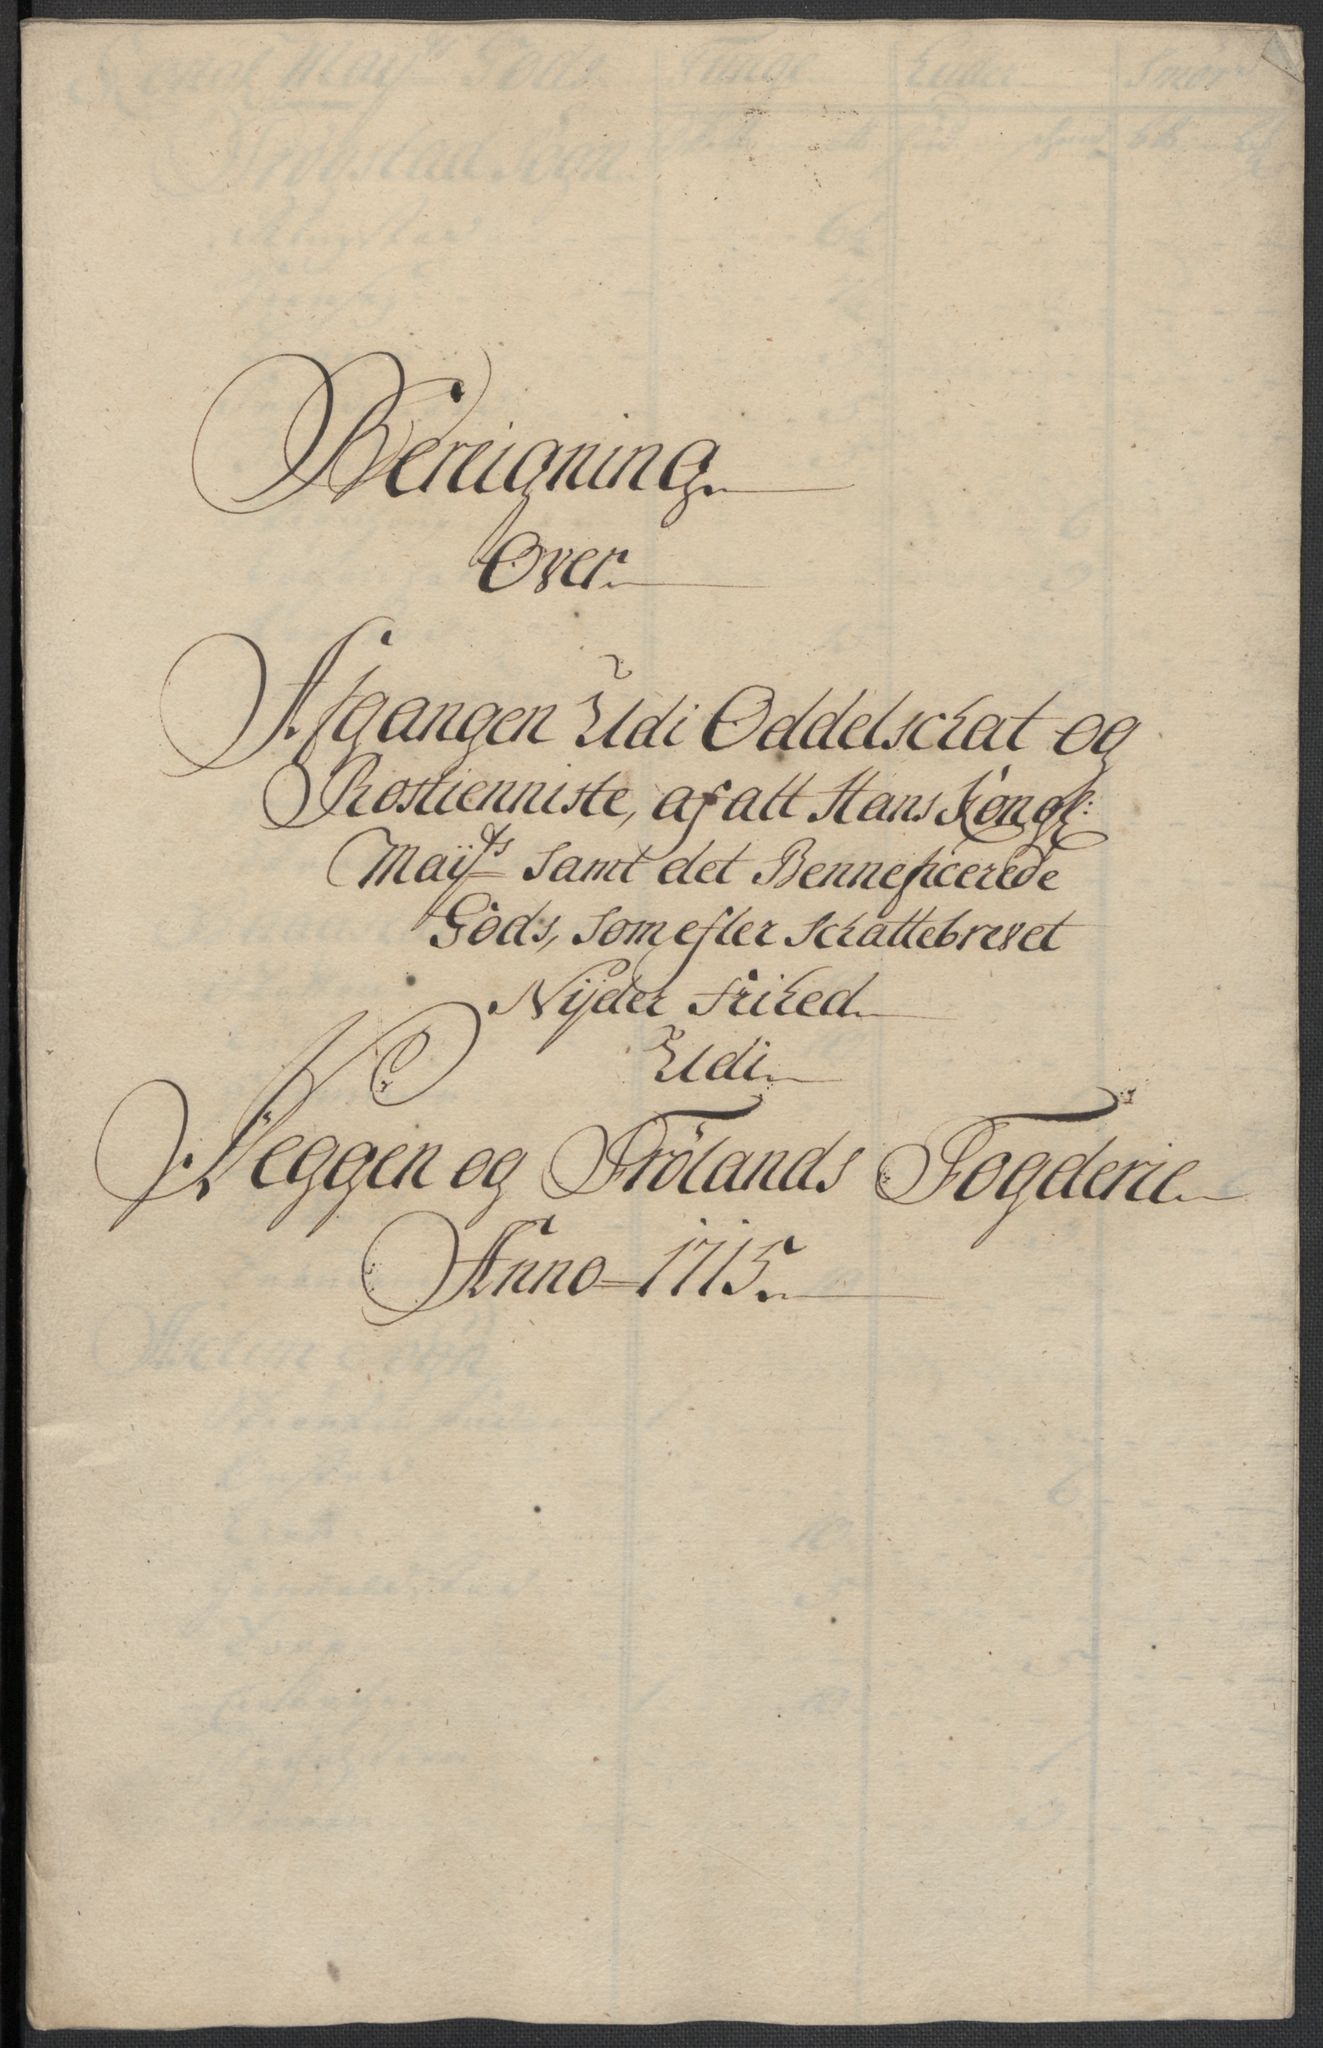 Bereigning
Over
Afgangen Udi Oddelschat og
Rostienniste, af alt Hans Kongl:
Maÿts samt det Benneficerede
Gods, som efter Schattebrevet
Nÿder frihed
Udi
Heggen og Frölands Fogderie
Anno 1715